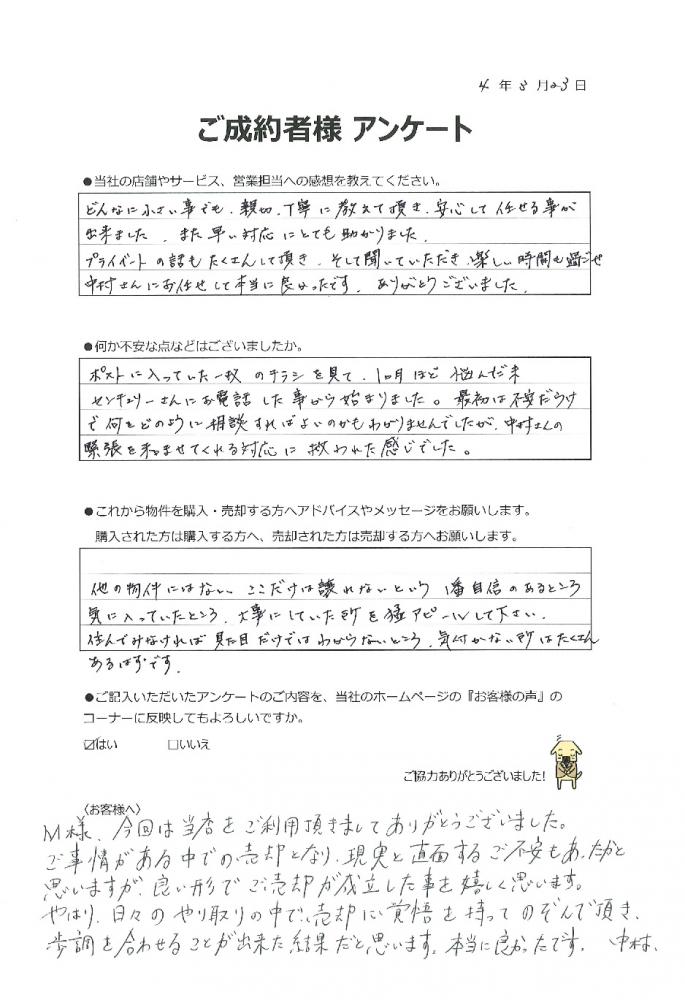 4年8月23日
ご成約者様 アンケート
●当社の店舗やサービス、営業担当への感想を教えてください。
どんなに小さい事でも、親切、丁寧に教えて頂き、安心して任せる事が
出来ました。また早い対応にとても助かりました。
プライベートの話もたくさんして頂き、そして聞いていただき楽しい時間も過ごせ
中村さんにお任せして本当に良かったです。ありがとうございました。
●何か不安な点などはございましたか。
ポストに入っていた一枚のチラシを見て、1ヶ月ほど悩んだ末
センチュリーさんにお電話した事から始まりました。最初は不安だらけ
で何をどのように相談すればよいのかもわかりませんでしたが、中村さんの
緊張を和ませてくれる対応に救われた感じでした。
●これから物件を購入・売却する方へアドバイスやメッセージをお願いします。
購入された方は購入する方へ、売却された方は売却する方へお願いします。
他の物件にはない、ここだけは譲れないという1番自信のあるところ
気に入っていたところ、大事にしていた所を猛アピールして下さい。
住んでみなければ見た目だけではわからないところ、気付かない所はたくさん
あるはずです。
●ご記入いただいたアンケートのご内容を、当社のホームページの『お客様の声』の
コーナーに反映してもよろしいですか。
☑はい □いいえ
ご協力ありがとうございました!
〈お客様へ〉
M様、今回は当店をご利用頂きましてありがとうございました。
ご事情がある中での売却となり、現実と直面するご不安もあったかと
思いますが、良い形でご売却が成立した事を嬉しく思います。
やはり、日々のやり取りの中で、売却に覚悟を持ってのぞんで頂き、
歩調を合わせることが出来た結果だと思います。本当に良かったです。 中村、